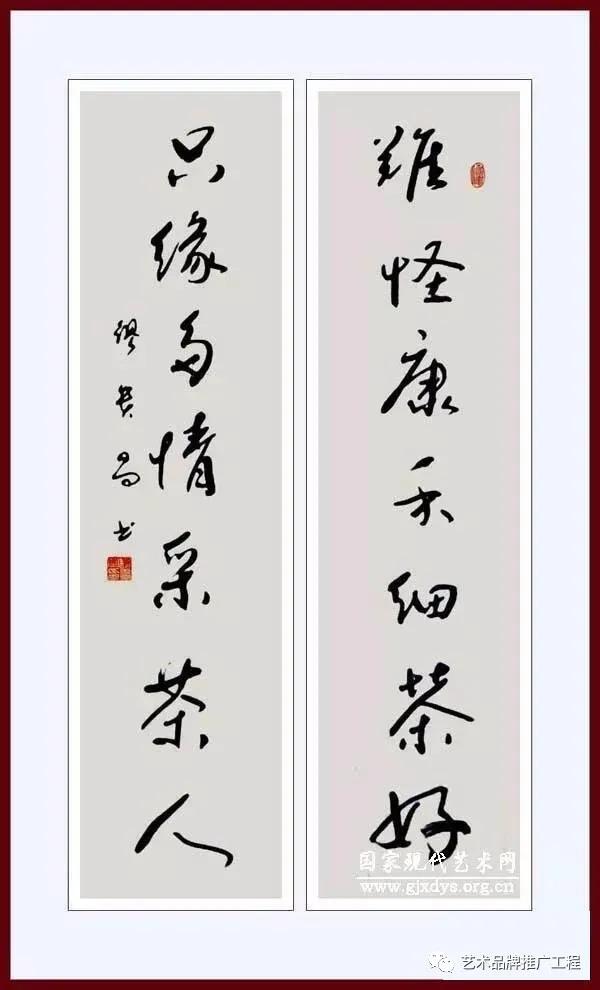 難怪康禾细茶好
只缘多情采茶人
缪昌书
国家现代艺术网
www.gjxdys.org.cn
艺术品牌推广工程